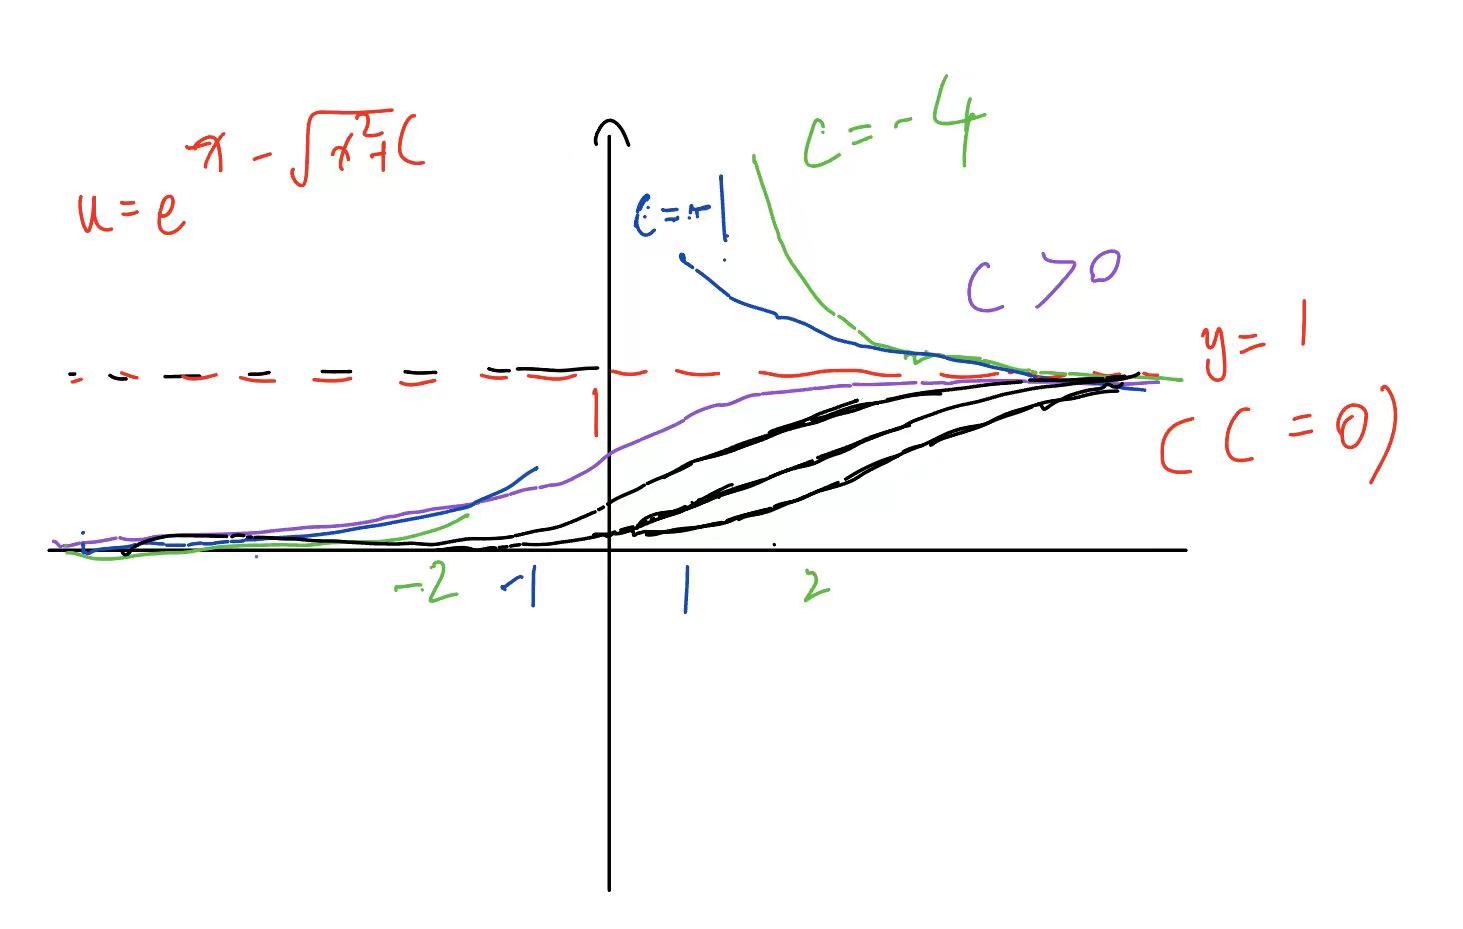 u = e^{x - √(x²+C)}
C = -4
C = -1
C > 0
y = 1
(C = 0)
1
-2 -1 1 2